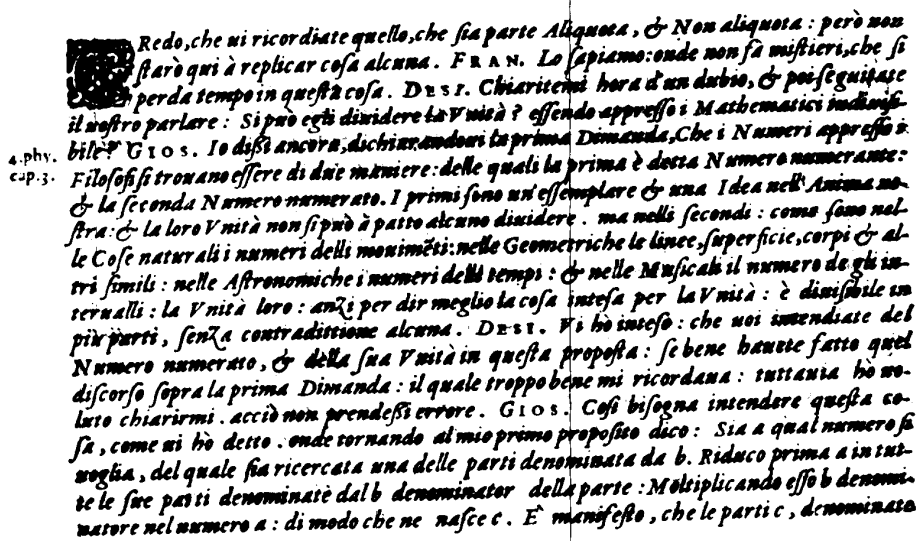 CRedo, che ui ricordiate quello, che sia parte Aliquota, & Non aliquota: però non
starò qui à replicar cosa alcuna. FRAN. Lo sapiamo: onde non fà mistieri, che si
perda tempo in questa cosa. DESI. Chiaritemi hora d'un dubio, & poi seguitate
il uostro parlare: Si può egli diuidere la Vnità? essendo appresso i Mathematici indiuisi-
bile? GIOS. Io dißi ancora, dichiarandoui la prima Dimanda, Che i Numeri appresso i
4. phy. cap. 3.
Filosofi si trouano essere di due maniere: delle quali la prima è detta Numero numerante:
& la seconda Numero numerato. I primi sono un'essemplare & una Idea nell'Anima no-
stra: & la loro Vnità non si può à patto alcuno diuidere. ma nelli secondi: come sono nel-
le Cose naturali i numeri delli mouimẽti: nelle Geometriche le linee, superficie, corpi & al-
tri simili: nelle Astronomiche i numeri delli tempi: & nelle Musicali il numero de gli in-
terualli: la Vnità loro: anzi per dir meglio la cosa intesa per la Vnità: è diuisibile in
più parti, senza contradittione alcuna. DESI. Vi hò inteso: che uoi intendiate del
Numero numerato, & della sua Vnità in questa proposta: se bene haueste fatto quel
discorso sopra la prima Dimanda: il quale troppo bene mi ricordaua: tuttauia hò uo-
luto chiarirmi. acciò non prendeßi errore. GIOS. Cosi bisogna intendere questa co-
sa, come ui hò detto. onde tornando al mio primo proposito dico: Sia a qual numero si
uoglia, del quale sia ricercata una delle parti denominata da b. Riduco prima a in tut-
te le sue parti denominate dal b denominator della parte: Moltiplicando esso b denomi-
natore nel numero a: di modo che ne nasce c. E' manifesto, che le parti c, denominate